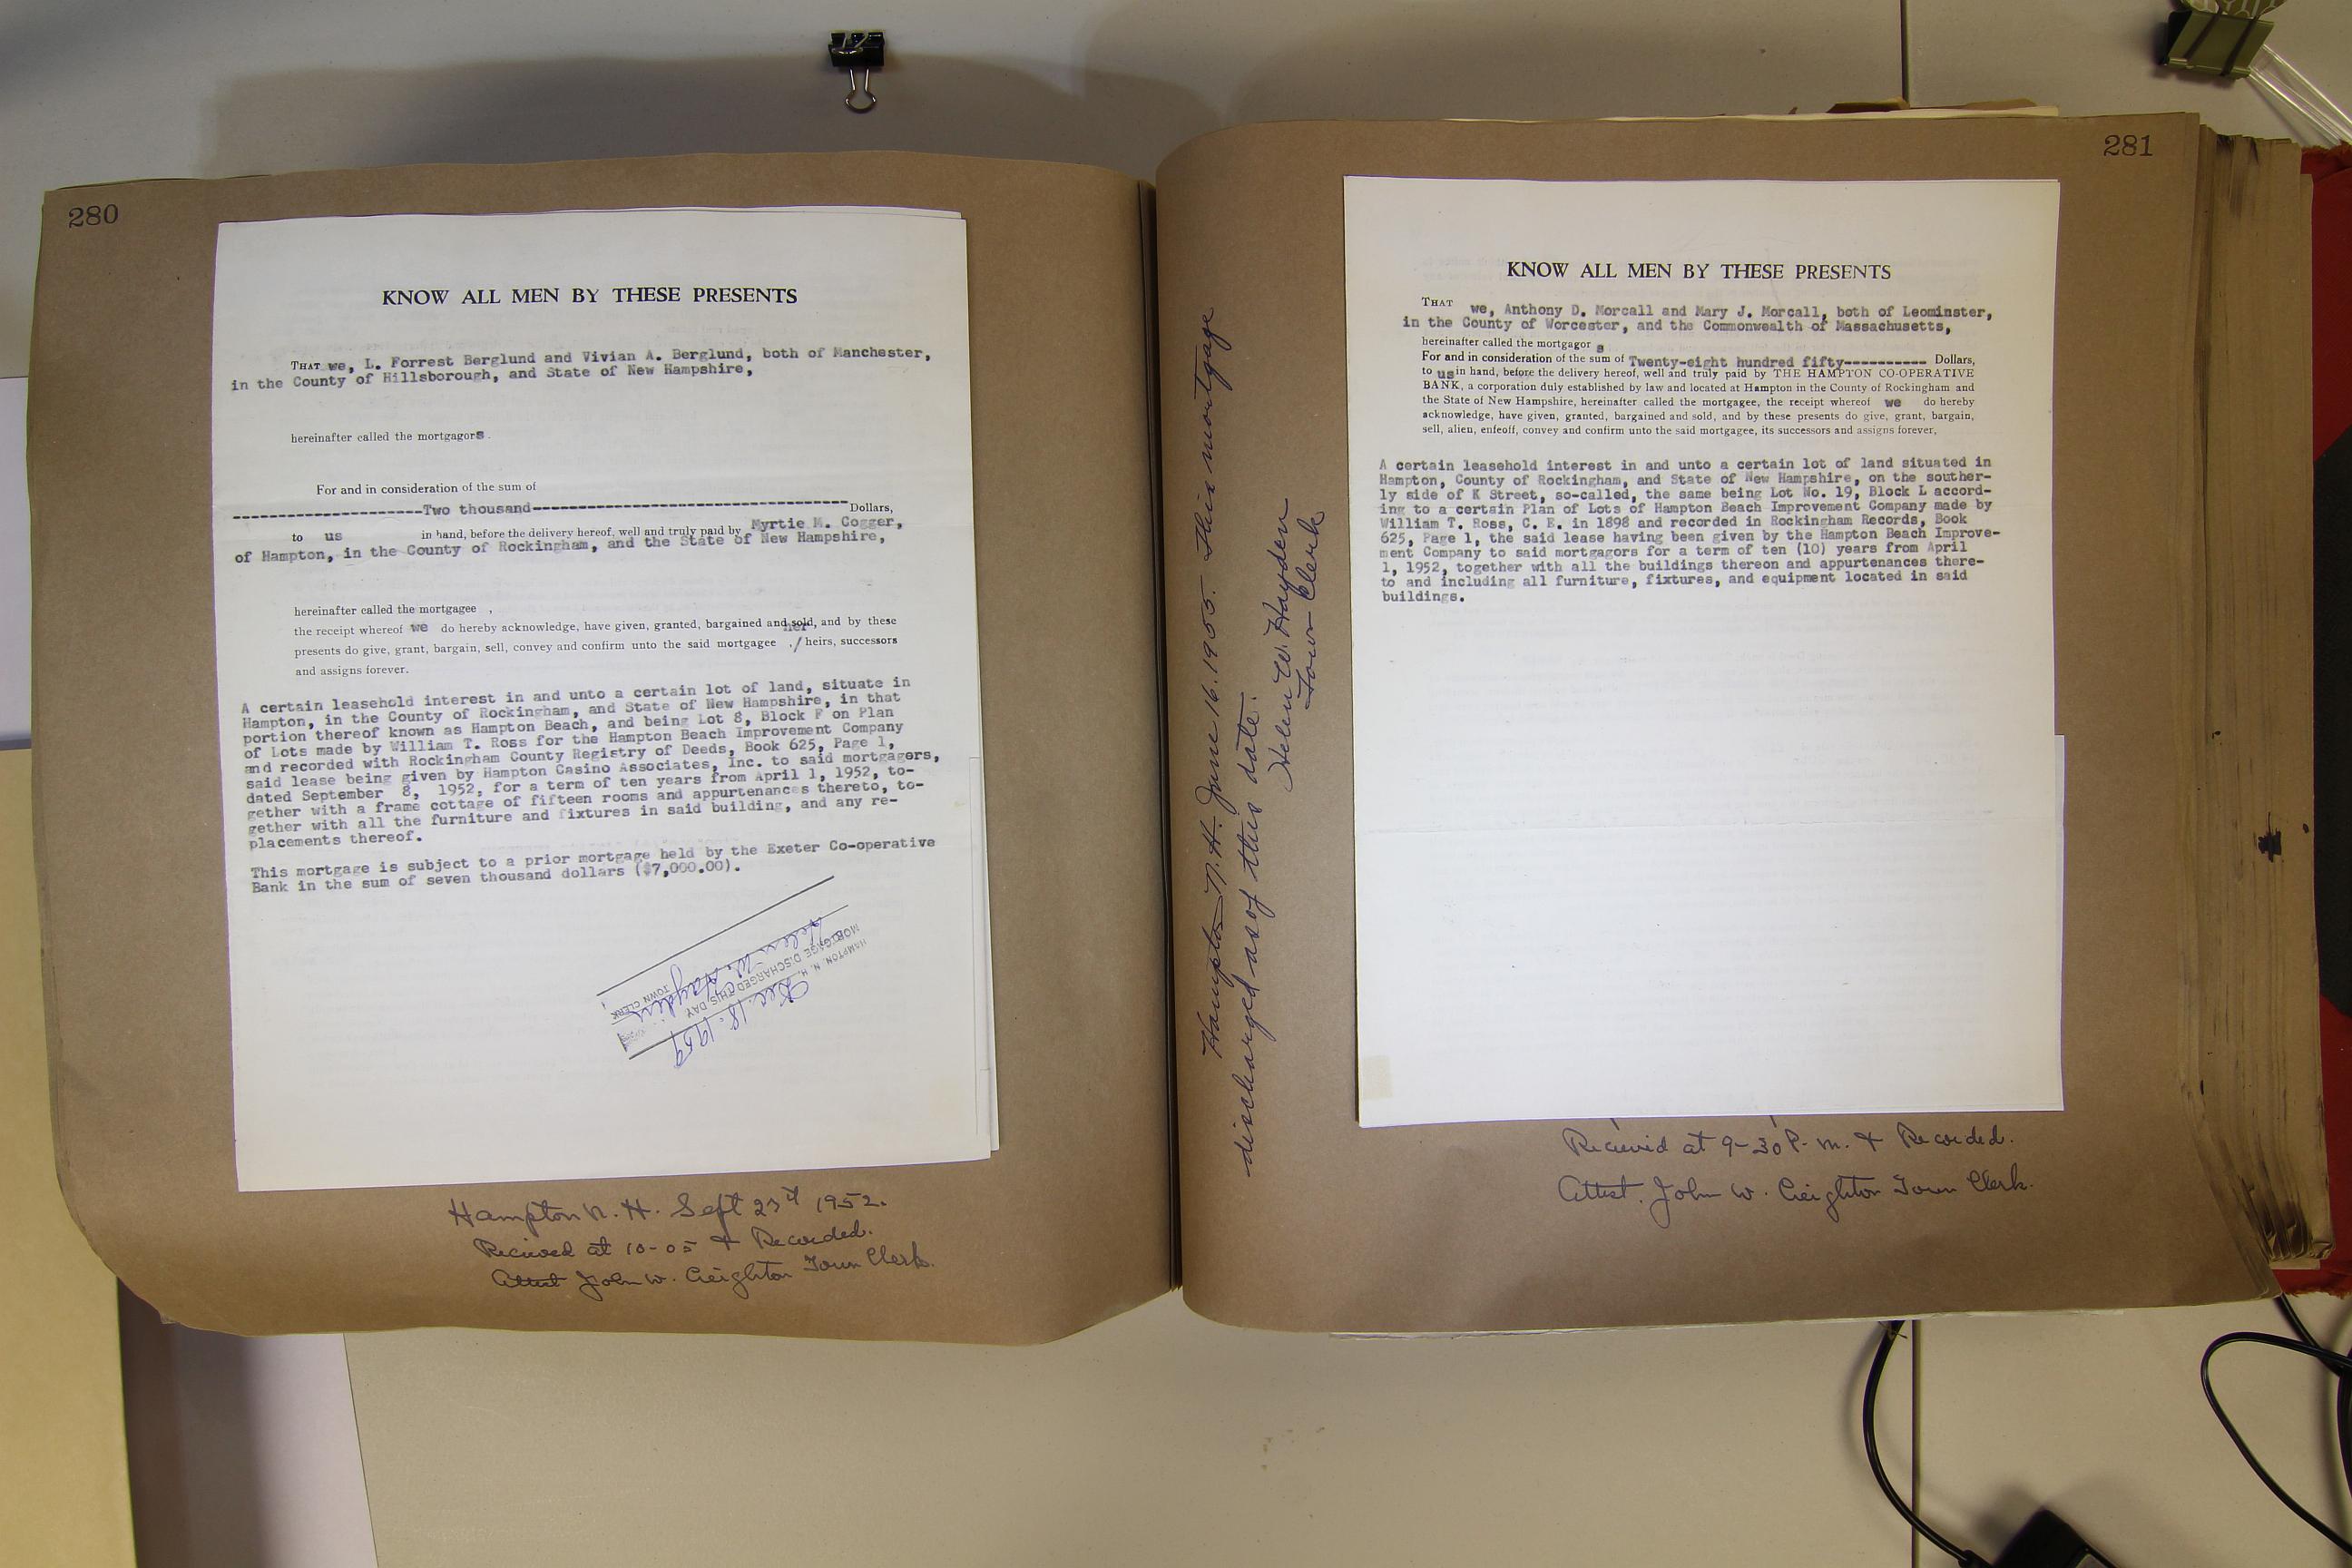 280
KNOW ALL MEN BY THESE PRESENTS
THAT we, L. Forrest Berglund and Vivian A. Berglund, both of Manchester,
in the County of Hillsborough, and State of New Hampshire,
hereinafter called the mortgagors.
For and in consideration of the sum of
----------------------Two thousand------------------------------------- Dollars,
to us in hand, before the delivery hereof, well and truly paid by Myrtie M. Cogger,
of Hampton, in the County of Rockingham, and the State of New Hampshire,
hereinafter called the mortgagee ,
the receipt whereof we do hereby acknowledge, have given, granted, bargained and sold, and by these
her
presents do give, grant, bargain, sell, convey and confirm unto the said mortgagee ,/ heirs, successors
and assigns forever.
A certain leasehold interest in and unto a certain lot of land, situate in
Hampton, in the County of Rockingham, and State of New Hampshire, in that
portion thereof known as Hampton Beach, and being Lot 8, Block F on Plan
of Lots made by William T. Ross for the Hampton Beach Improvement Company
and recorded with Rockingham County Registry of Deeds, Book 625, Page 1,
said lease being given by Hampton Casino Associates, Inc. to said mortgagers,
dated September 8, 1952, for a term of ten years from April 1, 1952, to-
gether with a frame cottage of fifteen rooms and appurtenances thereto, to-
gether with all the furniture and fixtures in said building, and any re-
placements thereof.
This mortgage is subject to a prior mortgage held by the Exeter Co-operative
Bank in the sum of seven thousand dollars ($7,000.00).
HAMPTON, N. H.
Dec. 18. 1959
MORTGAGE DISCHARGED THIS DAY
Helen W. Hayden
TOWN CLERK
Hampton N. H. Sept 23rd 1952.
Recieved at 10-05 & Recorded.
Attest John W. Creighton Town Clerk.
281
Hampton N. H. June 16. 1955. This mortgage
discharged as of this date.
Helen W. Hayden
Town Clerk
KNOW ALL MEN BY THESE PRESENTS
THAT we, Anthony D. Morcall and Mary J. Morcall, both of Leominster,
in the County of Worcester, and the Commonwealth of Massachusetts,
hereinafter called the mortgagor s
For and in consideration of the sum of Twenty-eight hundred fifty---------- Dollars,
to us in hand, before the delivery hereof, well and truly paid by THE HAMPTON CO-OPERATIVE
BANK, a corporation duly established by law and located at Hampton in the County of Rockingham and
the State of New Hampshire, hereinafter called the mortgagee, the receipt whereof we do hereby
acknowledge, have given, granted, bargained and sold, and by these presents do give, grant, bargain,
sell, alien, enfeoff, convey and confirm unto the said mortgagee, its successors and assigns forever,
A certain leasehold interest in and unto a certain lot of land situated in
Hampton, County of Rockingham, and State of New Hampshire, on the souther-
ly side of K Street, so-called, the same being Lot No. 19, Block L accord-
ing to a certain Plan of Lots of Hampton Beach Improvement Company made by
William T. Ross, C. E. in 1898 and recorded in Rockingham Records, Book
625, Page 1, the said lease having been given by the Hampton Beach Improve-
ment Company to said mortgagors for a term of ten (10) years from April
1, 1952, together with all the buildings thereon and appurtenances there-
to and including all furniture, fixtures, and equipment located in said
buildings.
Recieved at 9-30 P. M. & Recorded.
Attest. John W. Creighton Town Clerk.